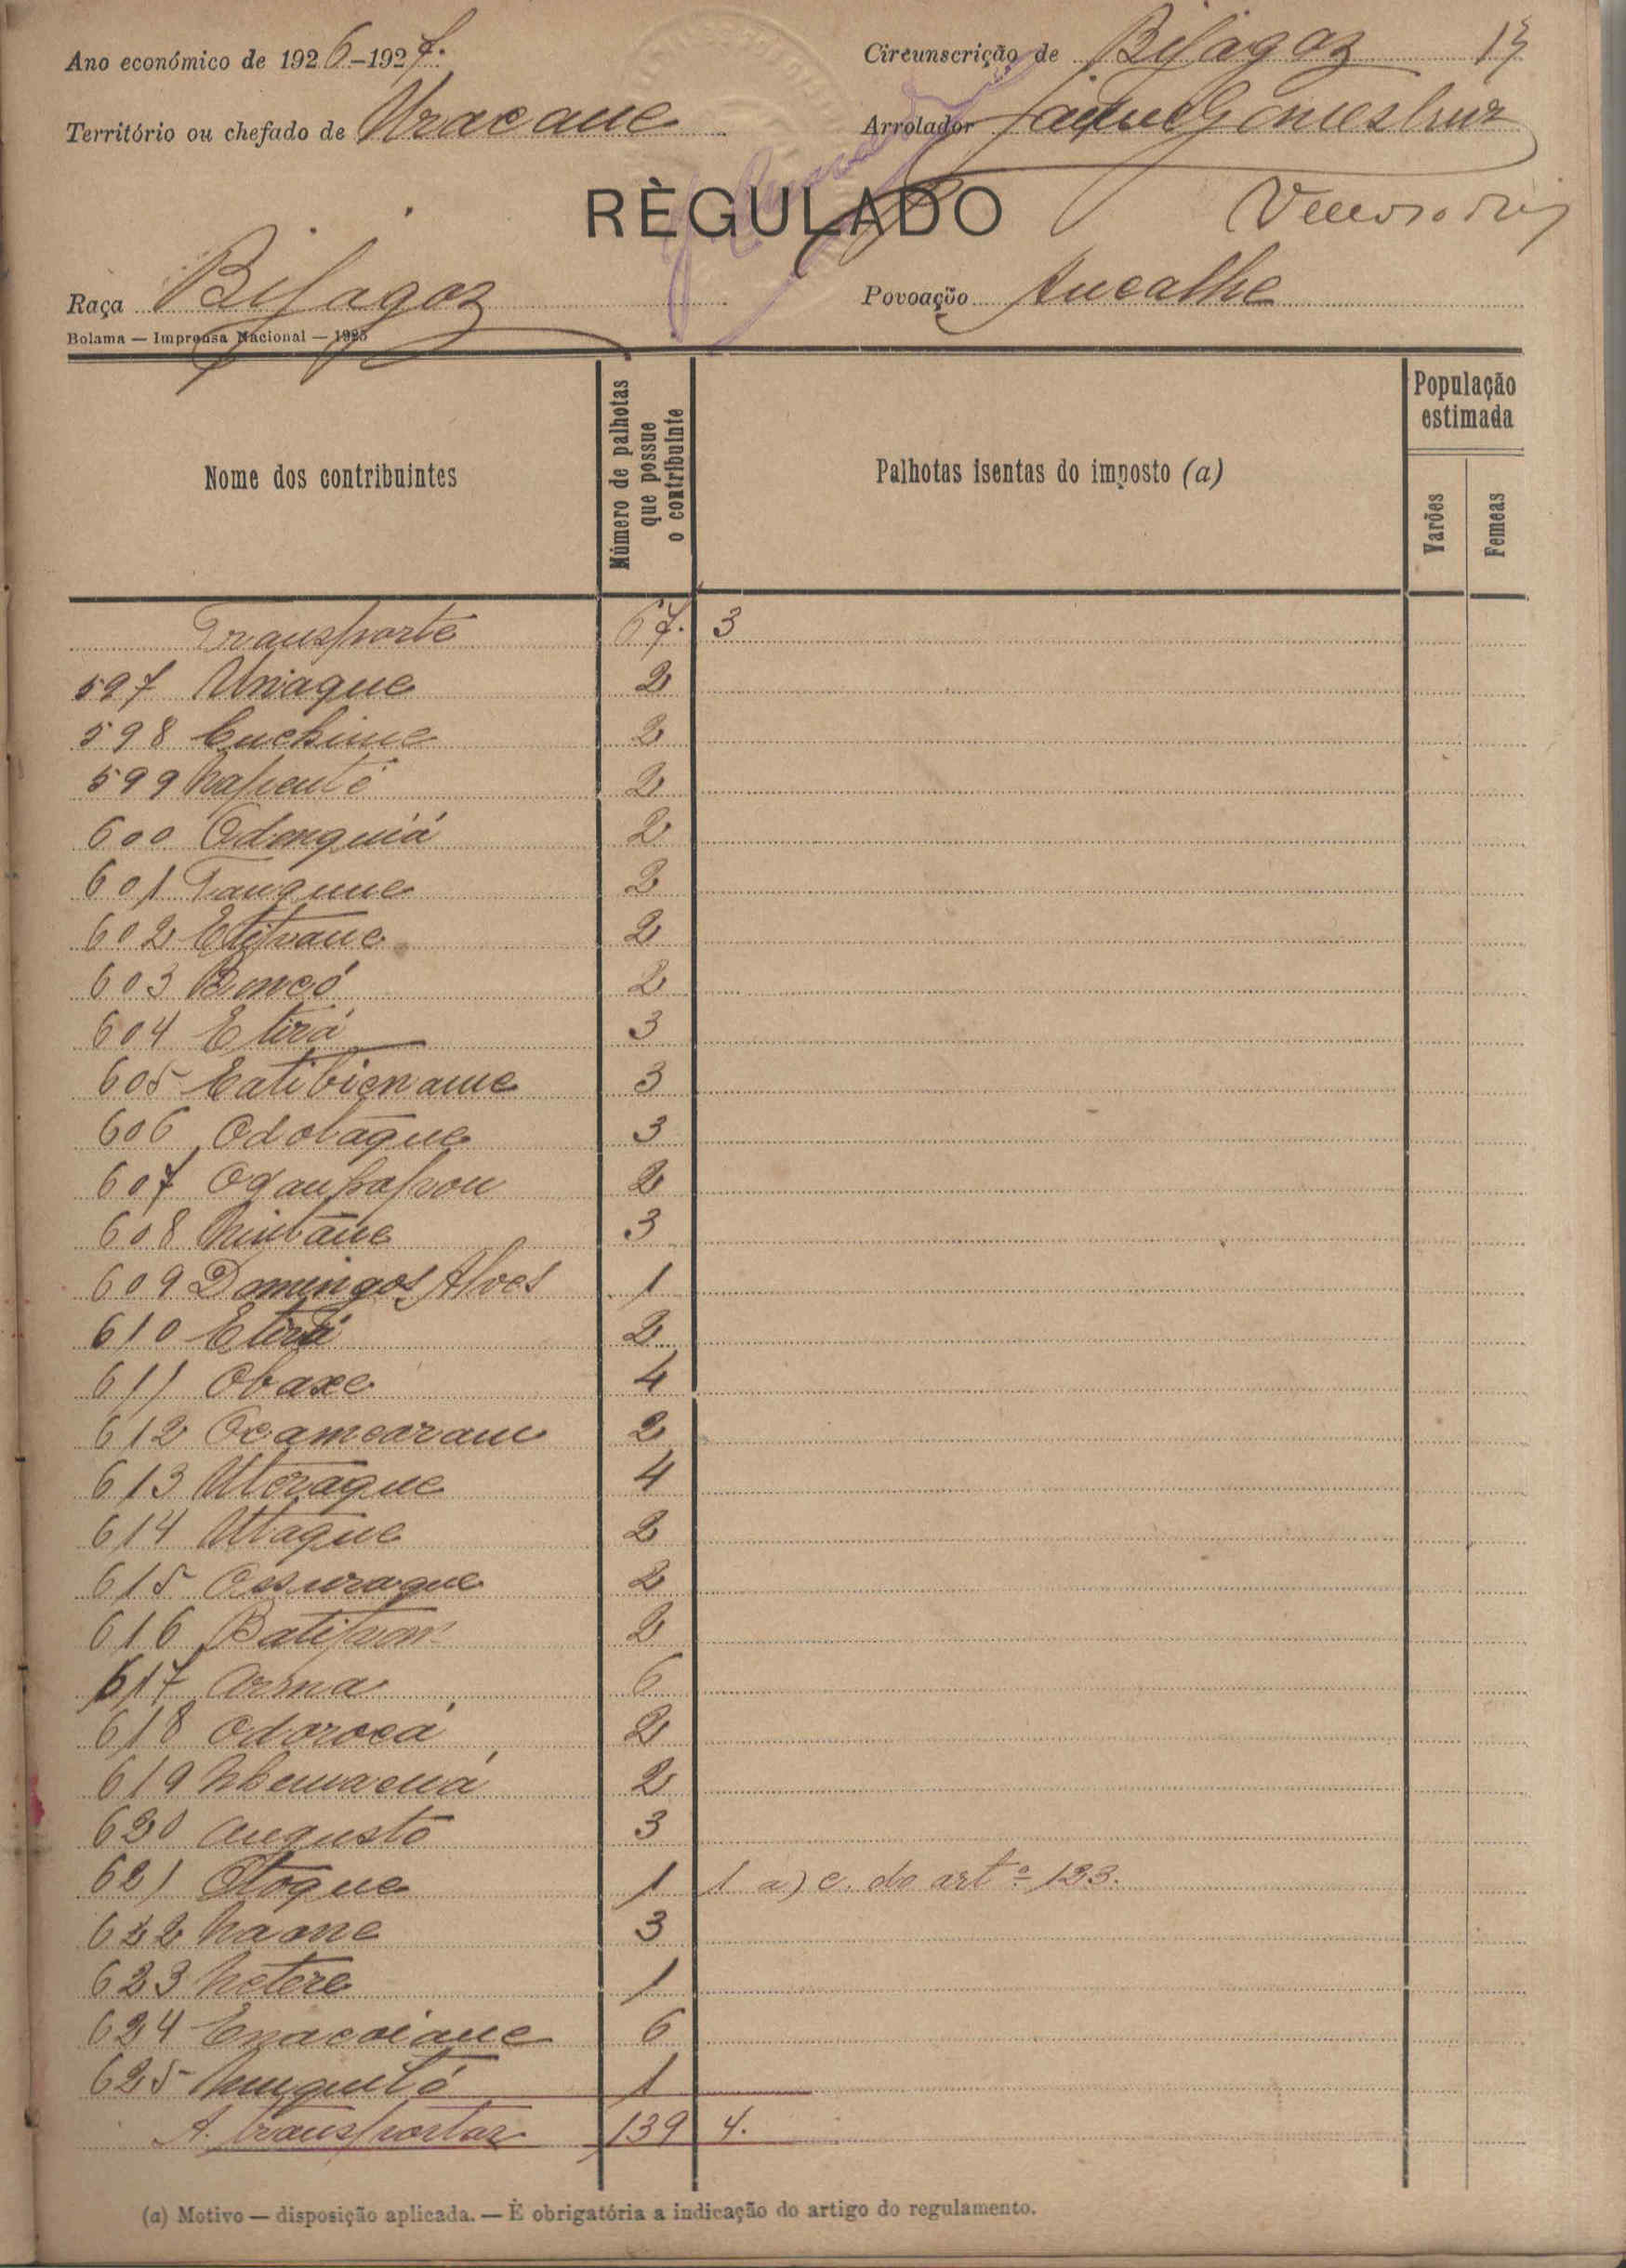 Ano económico de 1926-1927.
Circunscrição de Bijagoz 13
Território ou chefado de Uracane
Arrolador Jaime Gomes Cruz
RÈGULADO
Raça Bijagoz
Povoação Ancalhe
Bolama — Imprensa Nacional — 1925
Nome dos contribuintes
Número de palhotas que possue o contribuinte
Palhotas isentas do imposto (a)
População estimada
Varões
Femeas
Transporte 67. 3
597 Uniaque 2
598 Cuchime 2
599 2
600 Odenguiá 2
601 Tangune 2
602 2
603 Bomcó 2
604 Etirá 3
605 Catibiename 3
606 Odobaque 3
607 2
608 3
609 Domingos Alves 1
610 Etirá 2
611 Obaxe 4
612 Ocamcoram 2
613 Uteraque 4
614 Utaque 2
615 Ossuraque 2
616 2
617 Orena 6
618 Odorocá 2
619 2
620 Augusto 3
621 Otoque 1 1 a) c. do artº 133.
622 Naone 3
623 Netere 1
624 Enacoiane 6
625 Nunquitó 1
A transportar 139 4.
(a) Motivo — disposição aplicada. — É obrigatória a indicação do artigo do regulamento.